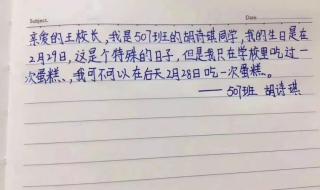 Subject.
Date
亲爱的王校长、我是507班的胡诗琪同学,我的生日是在
2月29日,这是个特殊的日子,但是我只在学校里吃过一
次蛋糕、,我可不可以在后天2月28日吃一次蛋糕。
——507班 胡诗琪